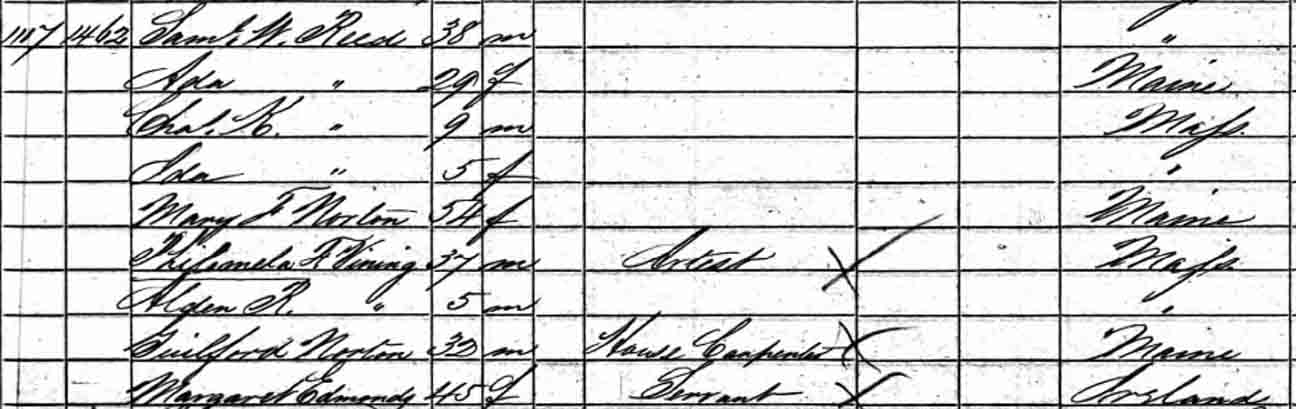 1117 1462 Saml. W. Reed 38 m "
Ada " 29 f Maine
Chas. K. " 9 m Mass.
Ida " 5 f "
Mary F Norton 54 f Maine
Philomela F Vining 37 m Artist X Mass.
Alden R. " 5 m "
Guilford Norton 32 m House Carpenter X Maine
Margaret Edmonds 45 f Servant X Ireland